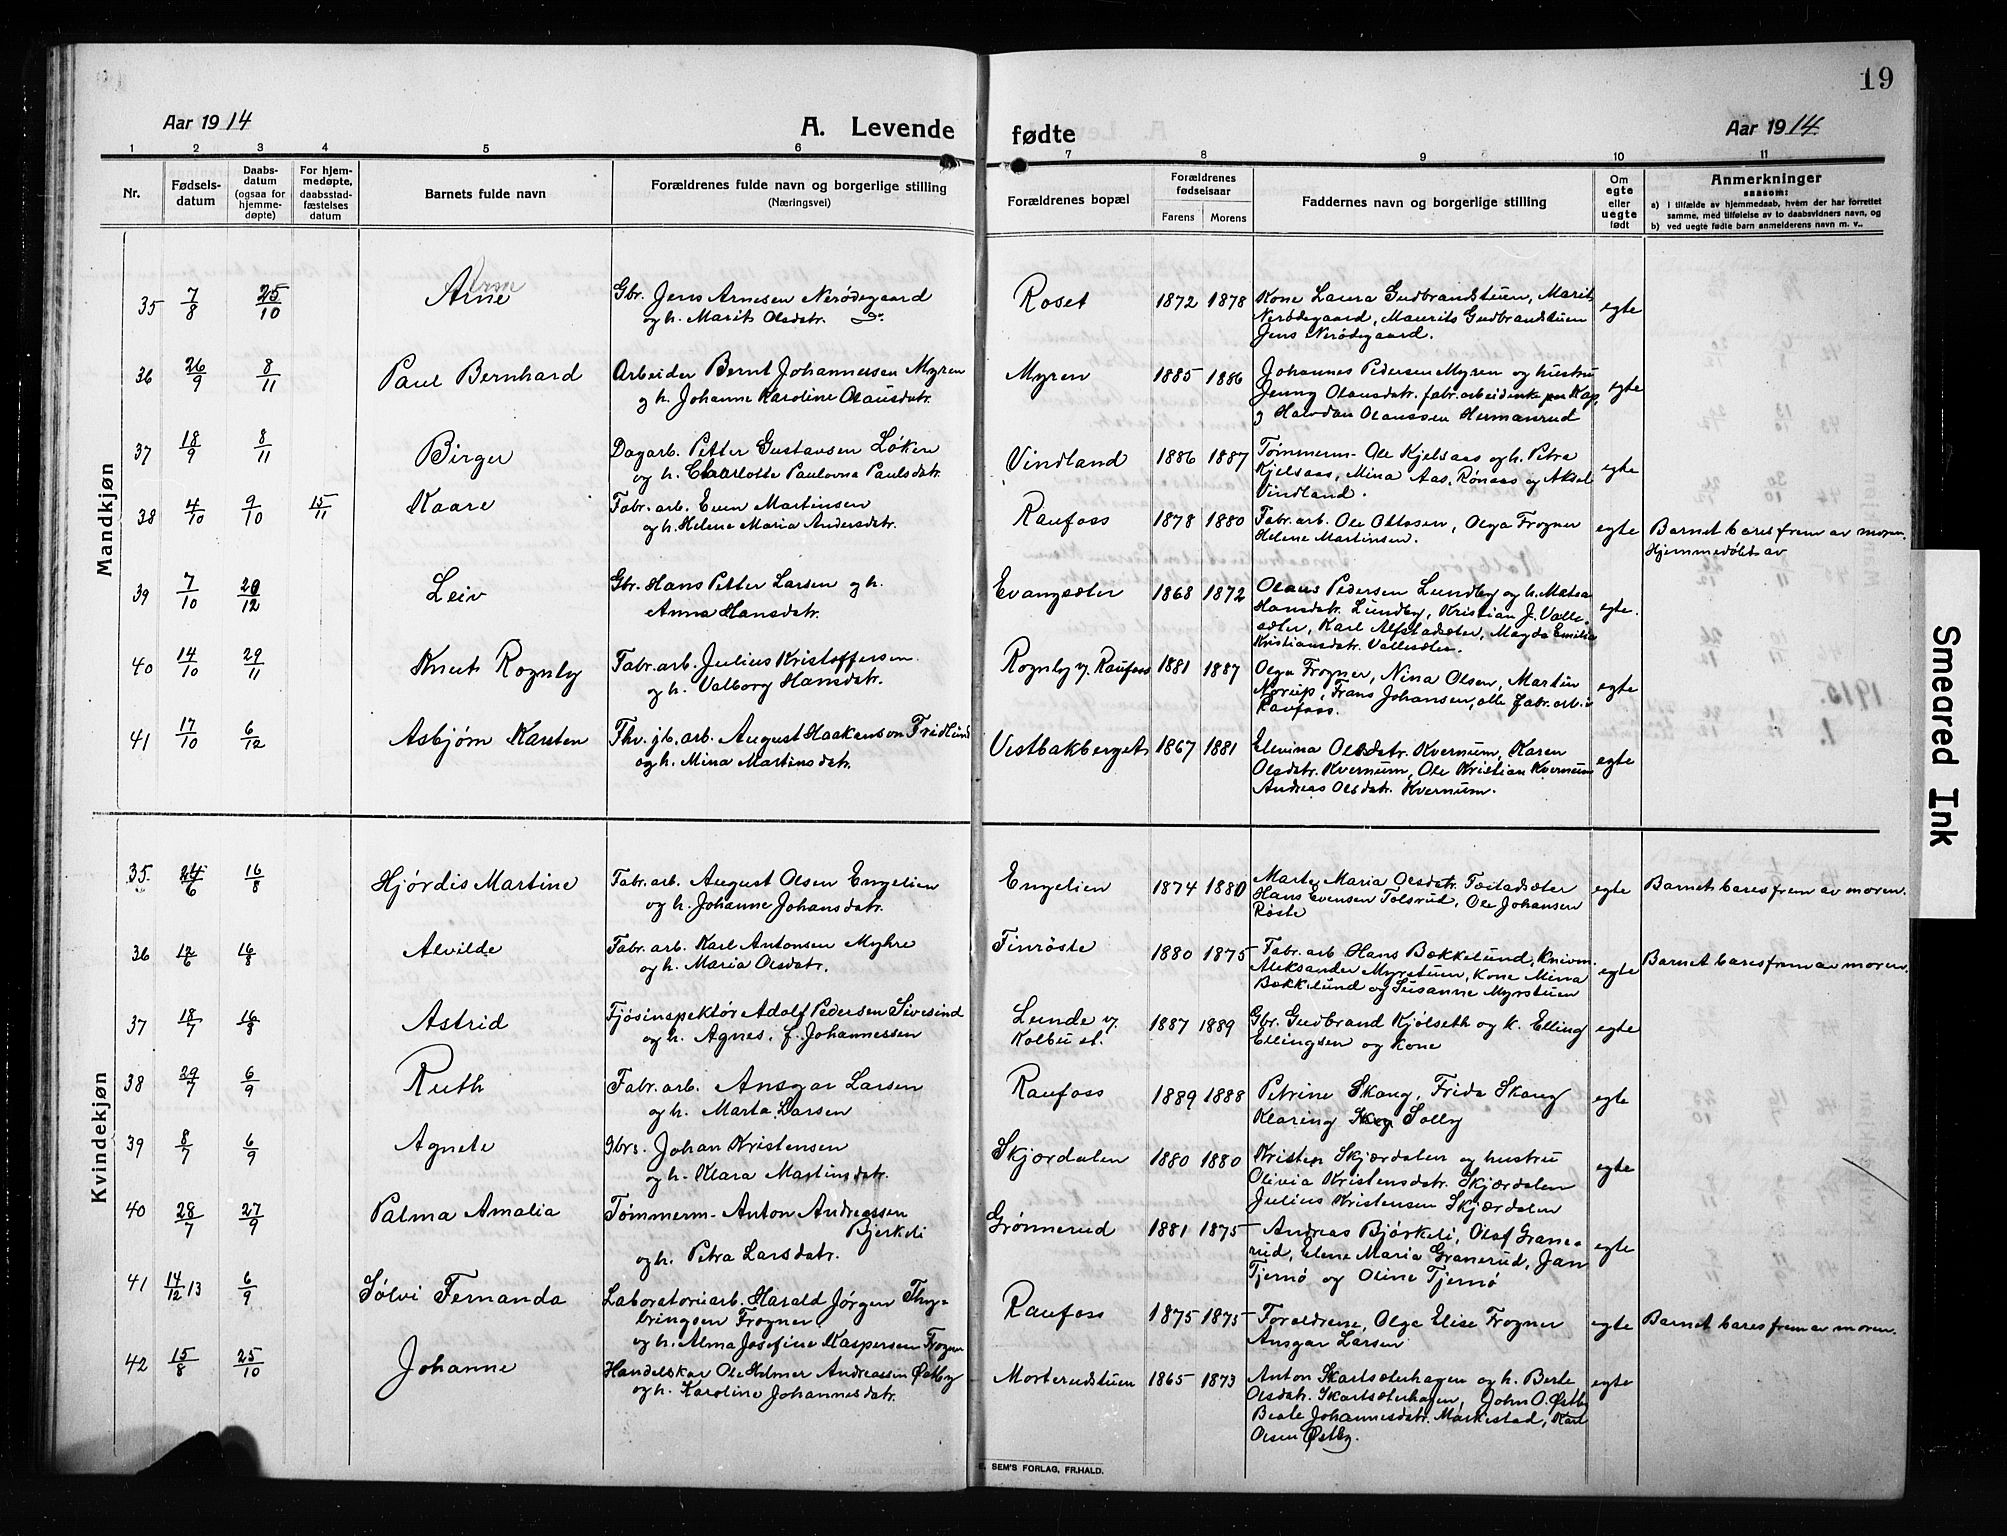 19
Aar 1914
A. Levende fødte
Aar 1914
1 2 3 4 5 6 7 8 9 10 11
Nr.
Fødsels-
datum
Daabs-
datum
(ogsaa for
hjemme-
døpte)
For hjem-
medøpte,
daabsstad-
fæstelses
datum
Barnets fulde navn
Forældrenes fulde navn og borgerlige stilling
(Næringsvei)
Forældrenes bopæl
Forældrenes
fødselsaar
Farens Morens
Faddernes navn og borgerlige stilling
Om
egte
eller
uegte
født
Anmerkninger
saasom:
a) i tilfælde av hjemmedaab, hvem der har forrettet
samme, med tilføielse av to daabsvidners navn, og
b) ved uegte fødte barn anmelderens navn m. v..
Mandkjøn
35 7/8 25/10 Arne
Gbr. Jens Arnesen Nerødegaard
og h. Marit Olsdatr. Do.
Roset 1872 1878
Kone Laura Gudbrandstuen, Marit
Nerødegaard, Maurits Gudbrandstuen
Jens Nerødegaard.
egte
36 26/9 8/11 Paul Bernhard
Arbeider Bernt Johannessen Myren
og h. Johanne Karoline Olausdatr.
Myren 1885 1886
Johannes Pedersen Myren og hustru
Jenny Olausdatr. fabr. arbeiderske
g Halvdan Olaussen Hermanrud
egte
37 18/9 8/11 Birger
Dagarb. Petter Gustavsen Løken
og h. Charlotte Paulovna Paulsdatr.
Vindland 1886 1887
Tømmerm. Ole Kjelsaas og h. Petra
Kjelsaas, Mina Aas, Rønaas og Aksel
Vindland.
egte
38 4/10 9/10 15/11 Kaare
Fabr. arb. Even Martinsen
og h. Helene Maria Andersdatr.
Raufoss 1878 1880
Fabr. arb. Ole Ottosen, Olga Frogner
Helene Martinsen.
egte
Barnet bares frem av moren.
Hjemmedøbt av
39 7/10 20/12 Leiv
Gbr. Hans Petter Larsen og h.
Anna Hansdatr.
Evangsæter 1868 1872
Olaus Pedersen Lundby og h. Matea
Hansdatr. Lundby, Kristian J. Valle-
sæter, Karl Alfstadsæter, Magda Emilie
Kristiansdatr. Vallesæter.
egte.
40 14/10 29/11 Knut Rognby
Fabr. arb. Julius Kristoffersen
og h. Valborg Hansdatr.
Rognby v. Raufoss 1881 1887
Olga Frogner, Nina Olsen, Martin
Norup, Frans Johansen, alle fabr. arb. i
Raufoss.
egte
41 17/10 6/12 Asbjørn Karsten
Thv. jb. arb. August Haakenson Fridlund
og h. Mina Martinsdatr.
Vestbakberget 1867 1881
Elevina Olsdatr. Kvernum, Karen
Olsdatr. Kvernum, Ole Kristian Kvernum
Andreas Olsdatr. Kvernum.
egte
Kvindekjøn
35. 24/6 16/8 Hjørdis Martine
Fabr. arb. August Olsen Engelien
og h. Johanne Johansdatr.
Engelien 1874 1880
Marte Maria Olsdatr. Tollesæter
Hans Evensen Tolsrud, Ole Johansen
Røste
egte
Barnet bares frem av moren.
36 12/6 16/8 Alvilde
Fabr. arb. Karl Antonsen Myhre
og h. Maria Olsdatr.
Finrøste 1880 1875
Fabr. arb Hans Bakkelund, kvinn.
Aleksander Myrstuen, Kone Mina
Bakkelund og Susanne Myrstuen
egte
Barnet bares frem av moren.
37 18/7 16/8 Astrid
Fjøsinspektør Adolf Pedersen Sivesind
og h. Agnes, f. Johannessen
Lunde v.
Kolbu st. 1887 1889
Gbr. Gudbrand Kjølseth og k. Elling
Ellingsen og Kone
egte
38 29/7 6/9 Ruth
Fabr. arb. Ansgar Larsen
og h. Marta Larsen
Raufoss 1889 1888
Petrine Skaug, Frida Skaug
Klaring Solby
egte
39 8/7 6/9 Agnete
Gbrs. Johan Kristensen
og h. Klara Martinsdatr.
Skjærdalen 1880 1880
Kristen Skjærdalen og hustru
Olivia Kristensdatr. Skjærdalen
Julius Kristensen Skjærdalen
egte
40 28/7 27/9 Palma Amalia
Tømmerm. Anton Andreassen
Bjerkeli
og h. Petra Larsdatr.
Grønnerud 1881 1875
Andreas Bjørkeli, Olaf Grane-
rud, Elene Maria Granerud, Jan
Tjernø og Oline Tjernø
egte
41 14/12 13 6/9 Sølvi Fernanda
Laboratoriearb. Harald Jørgen Thy-
bringsen Frogner
og h. Alma Josefine Kaspersen Frogner
Raufoss 1875 1875
Foraldrene, Olga Elise Frogner
Ansgar Larsen
egte
Barnet bares frem av moren.
42 15/8 25/10 Johanne
Handelskar Ole Helmer Andreassen Østby
og h. Karoline Johannesdatr.
Morterudstuen 1865 1873
Anton Skartsæterhagen og h. Berte
Olsdatr. Skartsæterhagen, John O. Østby
Beate Johannesdatr. Markestad, Karl
Olsen Østby.
egte
E. SEM'S FORLAG, FR.HALD.
Smeared Ink